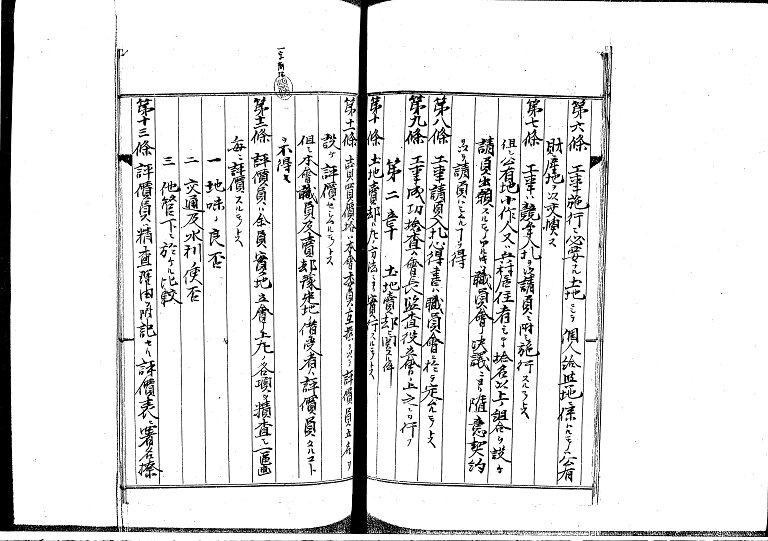 第六條 工事施行ニ必要ナル土地ニシテ個人給與地ニ係ルモノハ公有
財産地ヲ以テ交換ス
第七條 工事ハ競争入札ニ依リ請負ニ附シ施行スルモノトス
但シ公有地小作人又ハ其村居住有志者拾名以上組合ヲ設ケ
請負出願スルモノアルトキハ職員會ノ決議ニヨリ隨意契約
ヲ請負ハシムルコトヲ得
第八條 工事請負入札心得書ハ職員會ニ於テ定ムルモノトス
第九條 工事成功検査ハ會長監査役立會ノ上之ヲ行フ
第二章 土地賣却ニ關スル件
第十條 土地賣却ハ左ノ方法ニヨリ實行スルモノトス
第十一條 本會委員ノ互選ヲ以テ評價員五名ヲ
設ケ評價セシムルモノトス
但シ本會職員及賣却豫定地ノ借受者ハ評價員タルコト
ヲ不得
第十二條 評價員ハ全員實地立會ノ上左ノ各項ヲ精査シ一區畫
毎ニ評價スルモノトス
一 地味ノ良否
二 交通及水利ノ便否
三 他管下ニ於ケル比較
第十三條 評價員ハ精査理由ヲ附記セル評價表ニ署名捺